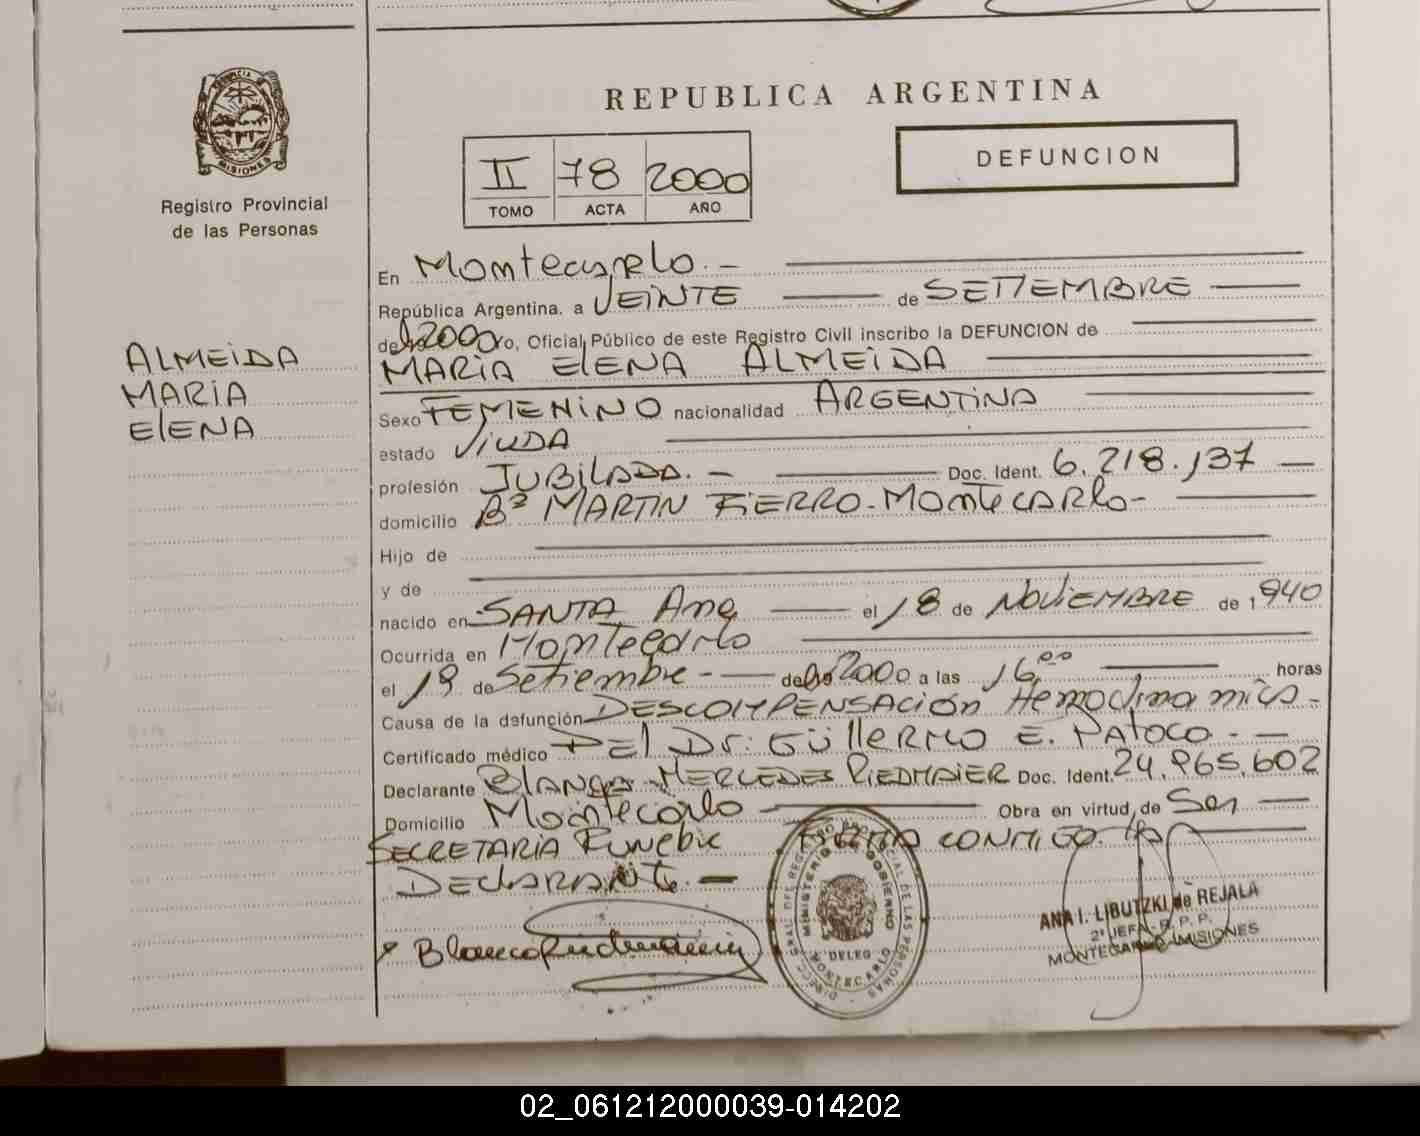 PROVINCIA DE
MISIONES
Registro Provincial
de las Personas
ALMEIDA
MARIA
ELENA
REPUBLICA ARGENTINA
II 78 2000
TOMO ACTA AÑO
DEFUNCION
En Montecarlo.-
República Argentina, a VEINTE de SETIEMBRE
de 2000 ro, Oficial Público de este Registro Civil inscribo la DEFUNCION de
MARIA ELENA ALMEIDA
Sexo FEMENINO nacionalidad ARGENTINA
estado VIUDA
profesión JUBILADA.- Doc. Ident. 6.218.137
domicilio Bº MARTIN FIERRO-MONTECARLO-
Hijo de
y de
nacido en SANTA Ana el 18 de NOVIEMBRE de 1940
Ocurrida en Montecarlo
el 19 de Setiembre - de 2000 a las 16 00 horas
Causa de la defunción DESCOMPENSACIÓN Hemodinamica-
Certificado médico DEl Dr: GUIllERMO E. PATOCO.-
Declarante BLANCA MERCEDES RIEDMAIER Doc. Ident. 24.965.602
Domicilio Montecarlo Obra en virtud de Ser
SECRETARIA Funebre FIRMA CONMIGO LA
DECLARANTE.-
Blanca Riedmaier
DIRECC. GRAL. DEL REGISTRO PROVINCIAL DE LAS PERSONAS
MINISTERIO DE GOBIERNO
DELEG
MONTECARLO
ANA I. LIBUTZKI de REJALA
2º JEFA - R. P. P.
MONTECARLO - MISIONES
02_061212000039-014202